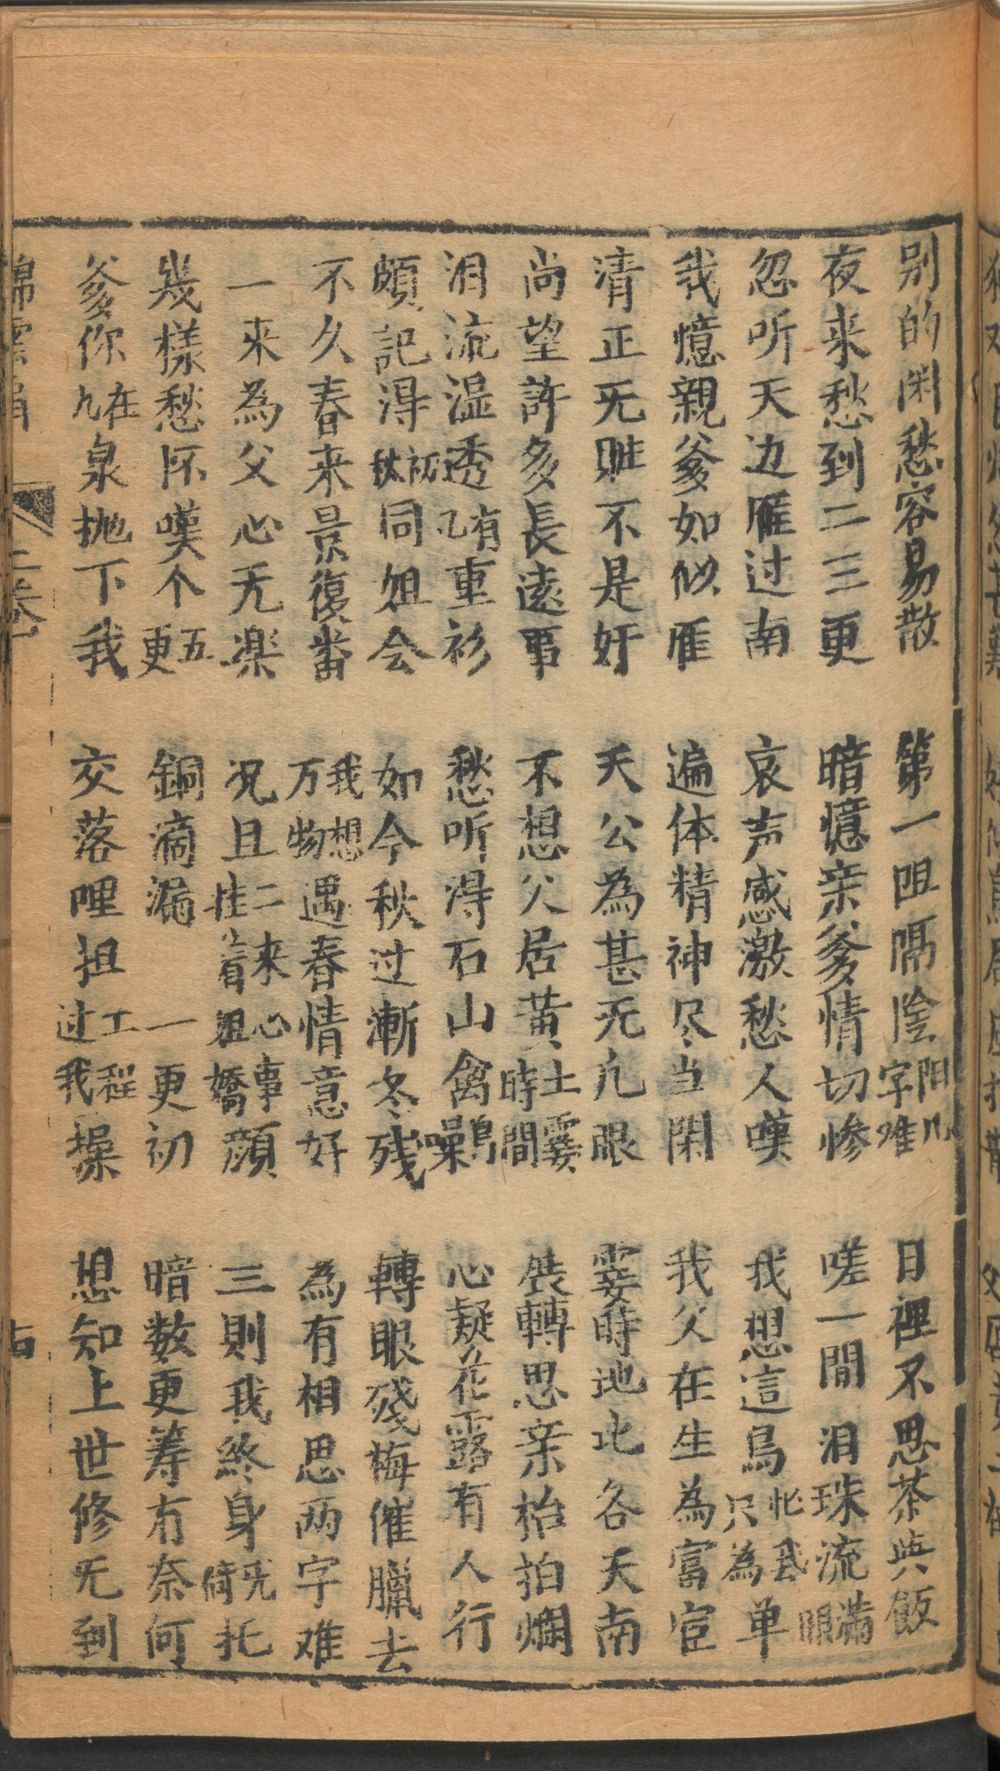 别的闲愁容易散　第一阻隔陰陽几字难　日裡不思茶與飯
夜来愁到二三更　暗憶亲爹情切惨　嗟一間　泪珠流滿眼
忽听天边雁过南　哀声感激愁人嘆　我想這鳥只為单
我憶親爹如似雁　遍体精神尽当閑　我父在生為富官
清正无賍不是奸　天公為甚无凢眼　霎時地北各天南
尚望許多長遠事　不想父居黄土霎時間　裝轉思亲枱拍爛
泪流湿透有重衫　愁听得石山禽鳥噪　心疑花露有人行
頗記得初秋同姐会　如今秋过漸冬残　轉眼殘梅催臘去
不久春来景復番　我想万物遇春情意好　為有相思两字难
一来為父心无楽　况且二来心事挂着姐嬌顔　三則我終身无倚托
幾樣愁怀嘆个五更　銅滴漏　一更初　暗数更筹冇奈何
爹你在九泉抛下我　交落哩担工程过我操　想知上世修无到
上卷